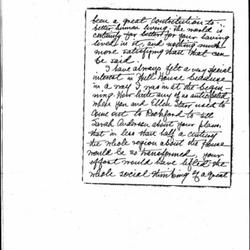 been a great contribution to
better human living. The world is
certainly far better for your having
lived in it, and nothing much
more satisfying than that can
be said.
I have always felt a very special
interest in Hull House because
in a way I was in at the begin-
ning. How little any of us anticipated
when you and Ellen Starr used to
come out to Rockford to tell
Sarah Anderson about your plans,
that in less than half a century
the whole region about the House
would be so transformed, your
effort would have lifted the
whole social thinking of a great